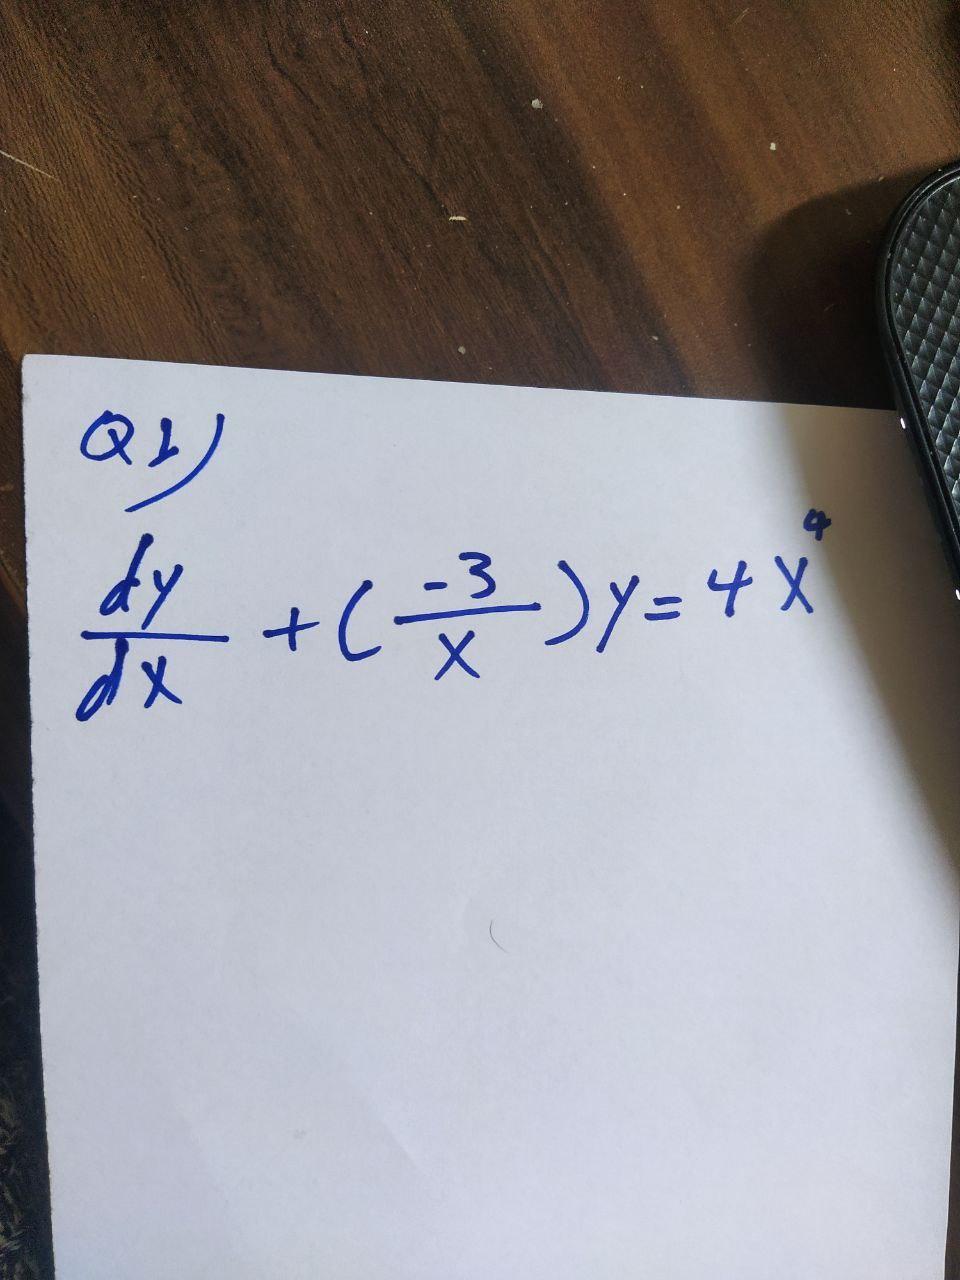 Q1)
dy/dx + (-3/x)y = 4x⁴